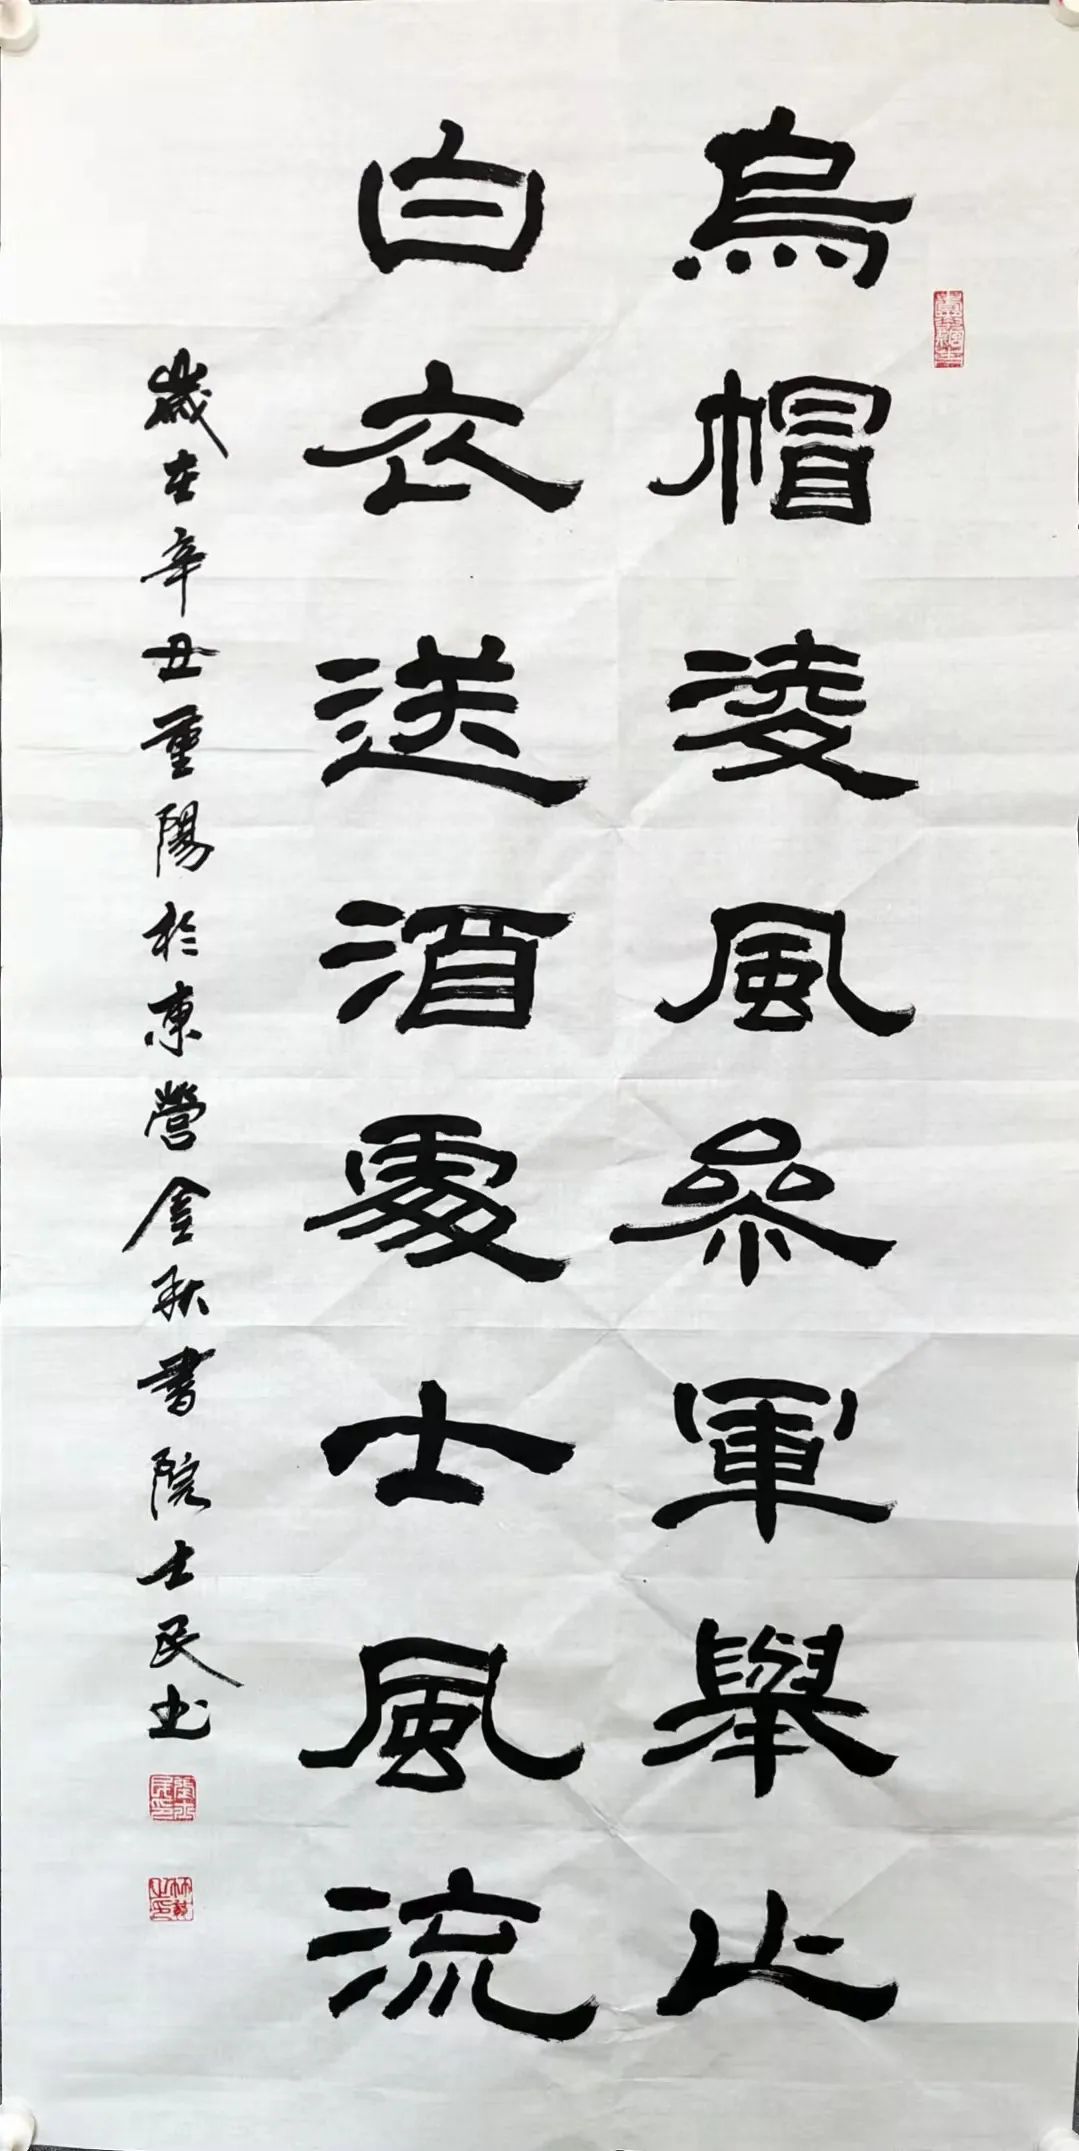 烏帽淩風參軍舉止
白衣送酒處士風流
歲在辛丑重陽於東營金秋書院士民书